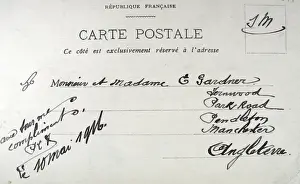 RÉPUBLIQUE FRANÇAISE
CARTE POSTALE
Ce côté est exclusivement réservé à l'adresse
S.M
Monsieur et Madame E Gardner
Fernwood
Park Road
Pendleton
Manchester
Angleterre
compliments
le 10 mai 1916